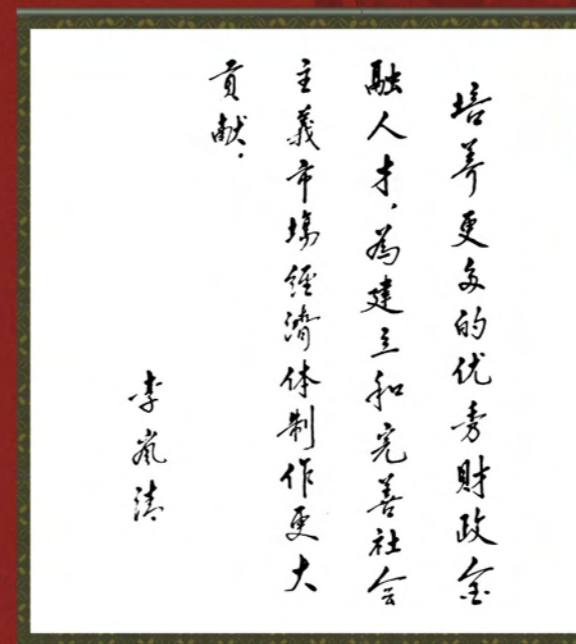 培养更多的优秀财政金
融人才，為建立和完善社会
主義市場經濟体制作更大
貢献。
李嵐清